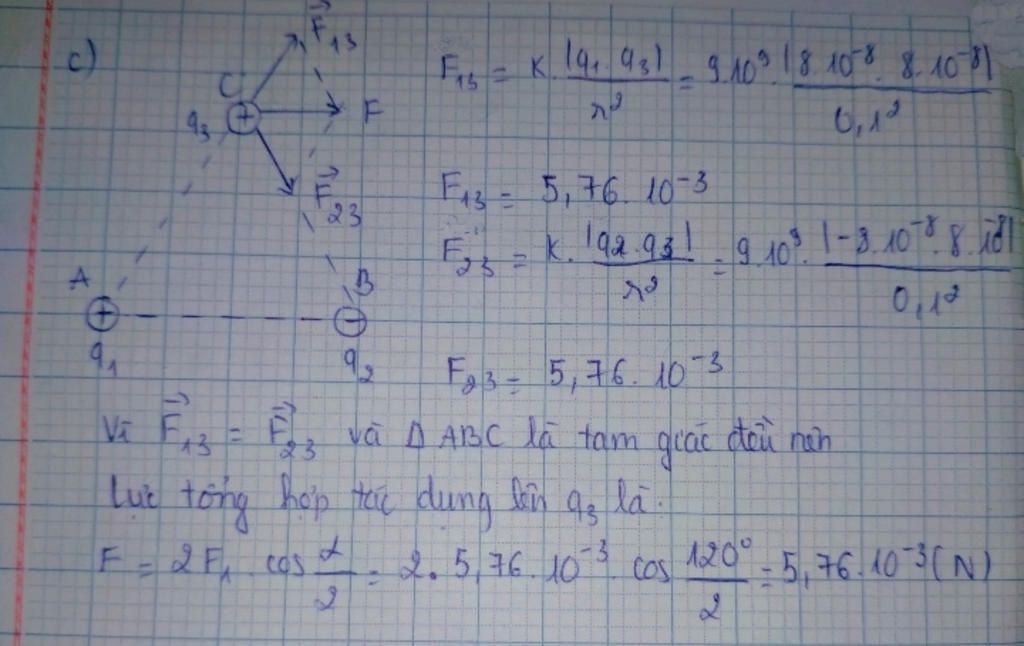 c)
C
q₃
F⃗₁₃
F
F⃗₂₃
A
B
q₁
q₂
F₁₃ = K. |q₁.q₃| / r² = 9.10⁹. |8.10⁻⁸. 8.10⁻⁸| / 0,1²
F₁₃ = 5,76. 10⁻³
F₂₃ = K. |q2.q3| / r² = 9.10⁹. |-8.10⁻⁸. 8.10⁻⁸| / 0,1²
F₂₃ = 5,76. 10⁻³
Vì F⃗₁₃ = F⃗₂₃ và Δ ABC là tam giác đều nên
lực tổng hợp tác dụng lên q₃ là.
F = 2F₁. cos α/2 = 2. 5,76. 10⁻³. cos 120°/2 = 5,76. 10⁻³ (N)